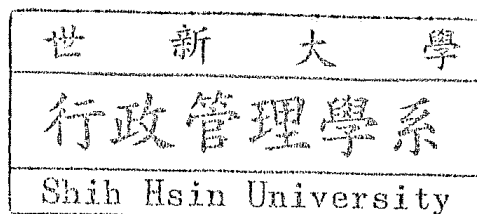 世新大學
行政管理學系
Shih Hsin University